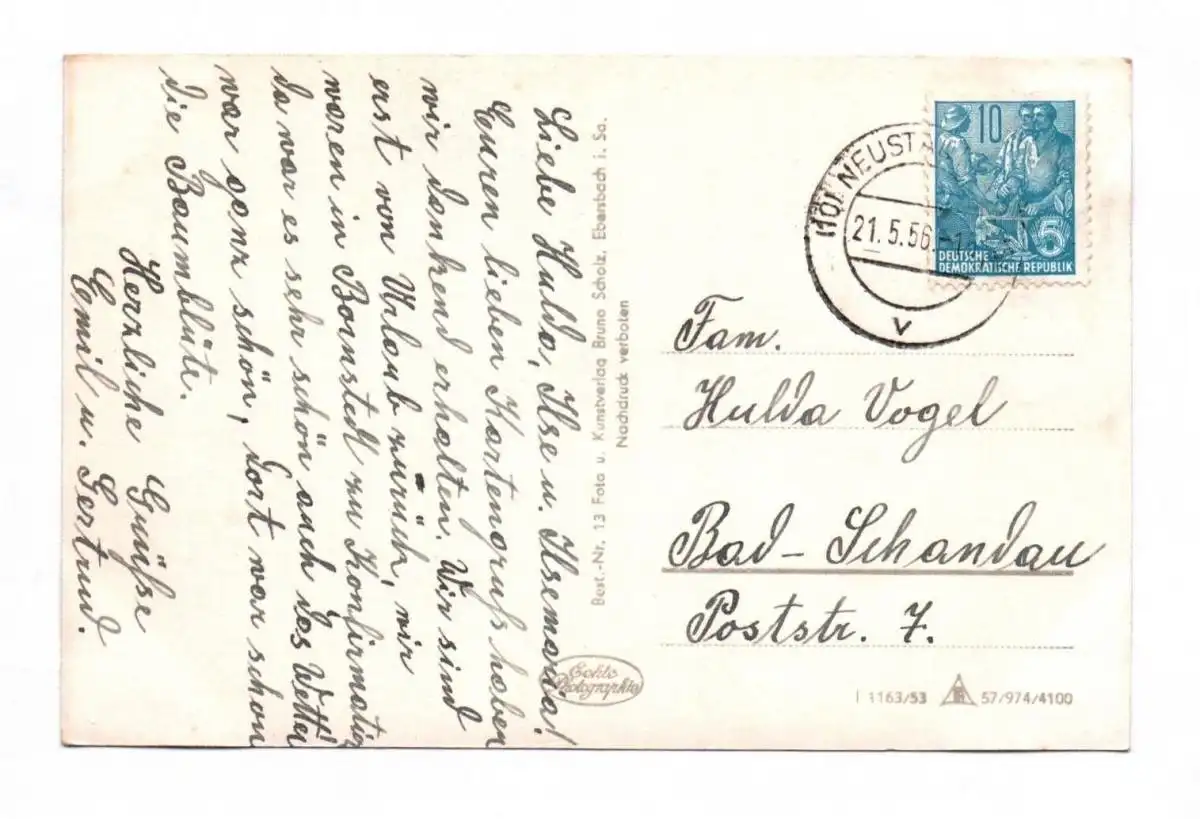 Liebe Hulda, Ilse u. Ilsemaria!
Euren lieben Kartengruß haben
wir dankend erhalten. Wir sind
erst von Urlaub zurück, wir
waren in Bornstedt zu Konfirmation
da war es sehr schön auch das Wetter
war ganz schön, dort war schon
die Baumblüte.
Herzliche Grüße
Emil u. Gertrud.
Best.-Nr. 13 Foto u. Kunstverlag Bruno Scholz, Ebersbach i. Sa.
Nachdruck verboten
Echte
Photographie
(10)
21.5.56.
v
10
5
DEUTSCHE
DEMOKRATISCHE REPUBLIK
Fam.
Hulda Vogel
Bad-Schandau
Poststr. 7.
I 1163/53 57/974/4100